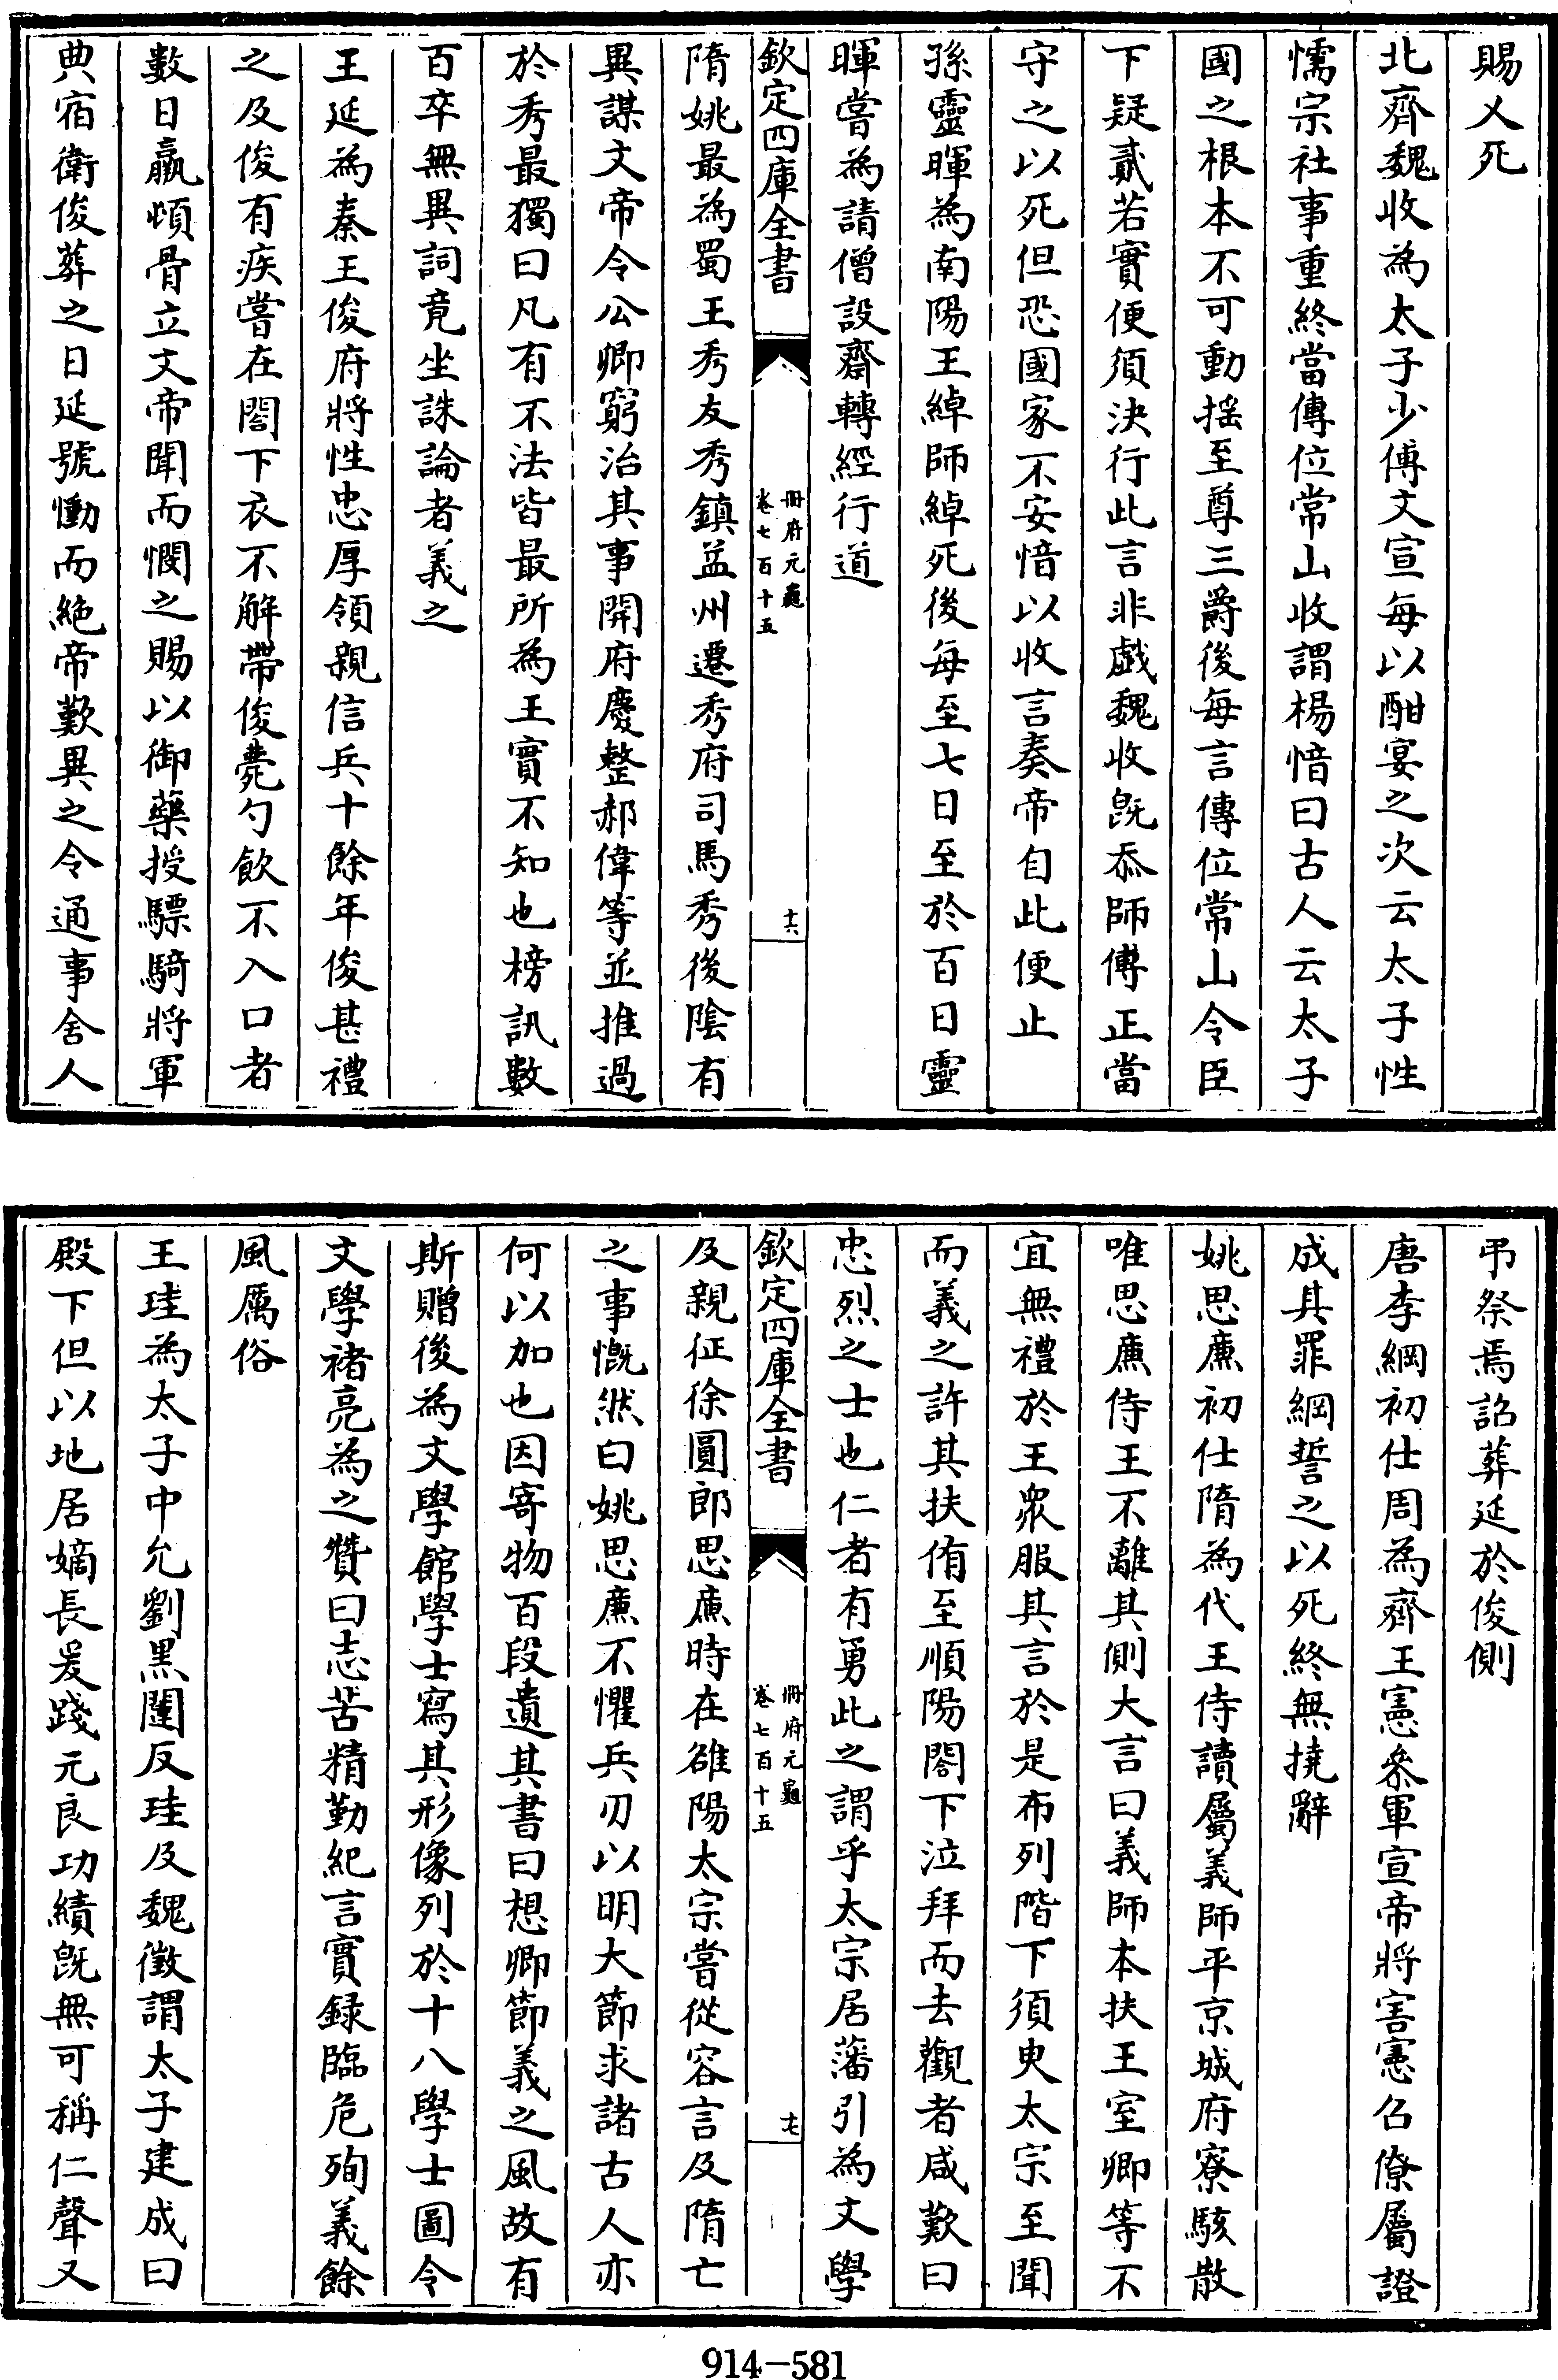 賜乂死
北齊魏收為太子少傅文宣每以酣宴之次云太子性
懦宗社事重終當傳位常山收謂楊愔曰古人云太子
國之根本不可動揺至尊三爵後每言傳位常山令臣
下疑貳若實便須決行此言非戯魏收既忝師傅正當
守之以死但恐國家不安愔以收言奏帝自此便止
孫靈暉為南陽王綽師綽死後每至七日至於百日靈
暉嘗為請僧設齋轉經行道
欽定四庫全書
冊府元龜
卷七百十五
十六
隋姚最為蜀王秀友秀鎮益州遷秀府司馬秀後陰有
異謀文帝令公卿窮治其事開府慶整郝偉等並推過
於秀最獨曰凡有不法皆最所為王實不知也榜訊數
百卒無異詞竟坐誅論者義之
王延為秦王俊府將性忠厚領親信兵十餘年俊甚禮
之及俊有疾嘗在閤下衣不解帶俊薨勺飲不入口者
數日羸頓骨立文帝聞而憫之賜以御藥授驃騎將軍
典宿衛俊葬之日延號慟而絶帝歎異之令通事舍人
弔祭焉詔葬延於俊側
唐李綱初仕周為齊王憲叅軍宣帝將害憲召僚屬證
成其罪綱誓之以死終無撓辭
姚思廉初仕隋為代王侍讀屬義師平京城府寮駭散
唯思廉侍王不離其側大言曰義師本扶王室卿等不
宜無禮於王衆服其言於是布列階下須臾太宗至聞
而義之許其扶侑至順陽閤下泣拜而去觀者咸歎曰
忠烈之士也仁者有勇此之謂乎太宗居藩引為文學
欽定四庫全書
冊府元龜
卷七百十五
十七
及親征徐圓郎思廉時在雒陽太宗嘗從容言及隋亡
之事慨然曰姚思廉不懼兵刃以明大節求諸古人亦
何以加也因寄物百段遺其書曰想卿節義之風故有
斯贈後為文學館學士寫其形像列於十八學士圖令
文學褚亮為之贊曰志苦精勤紀言實録臨危殉義餘
風厲俗
王珪為太子中允劉黑闥反珪及魏徵謂太子建成曰
殿下但以地居嫡長爰踐元良功績既無可稱仁聲又
914-581